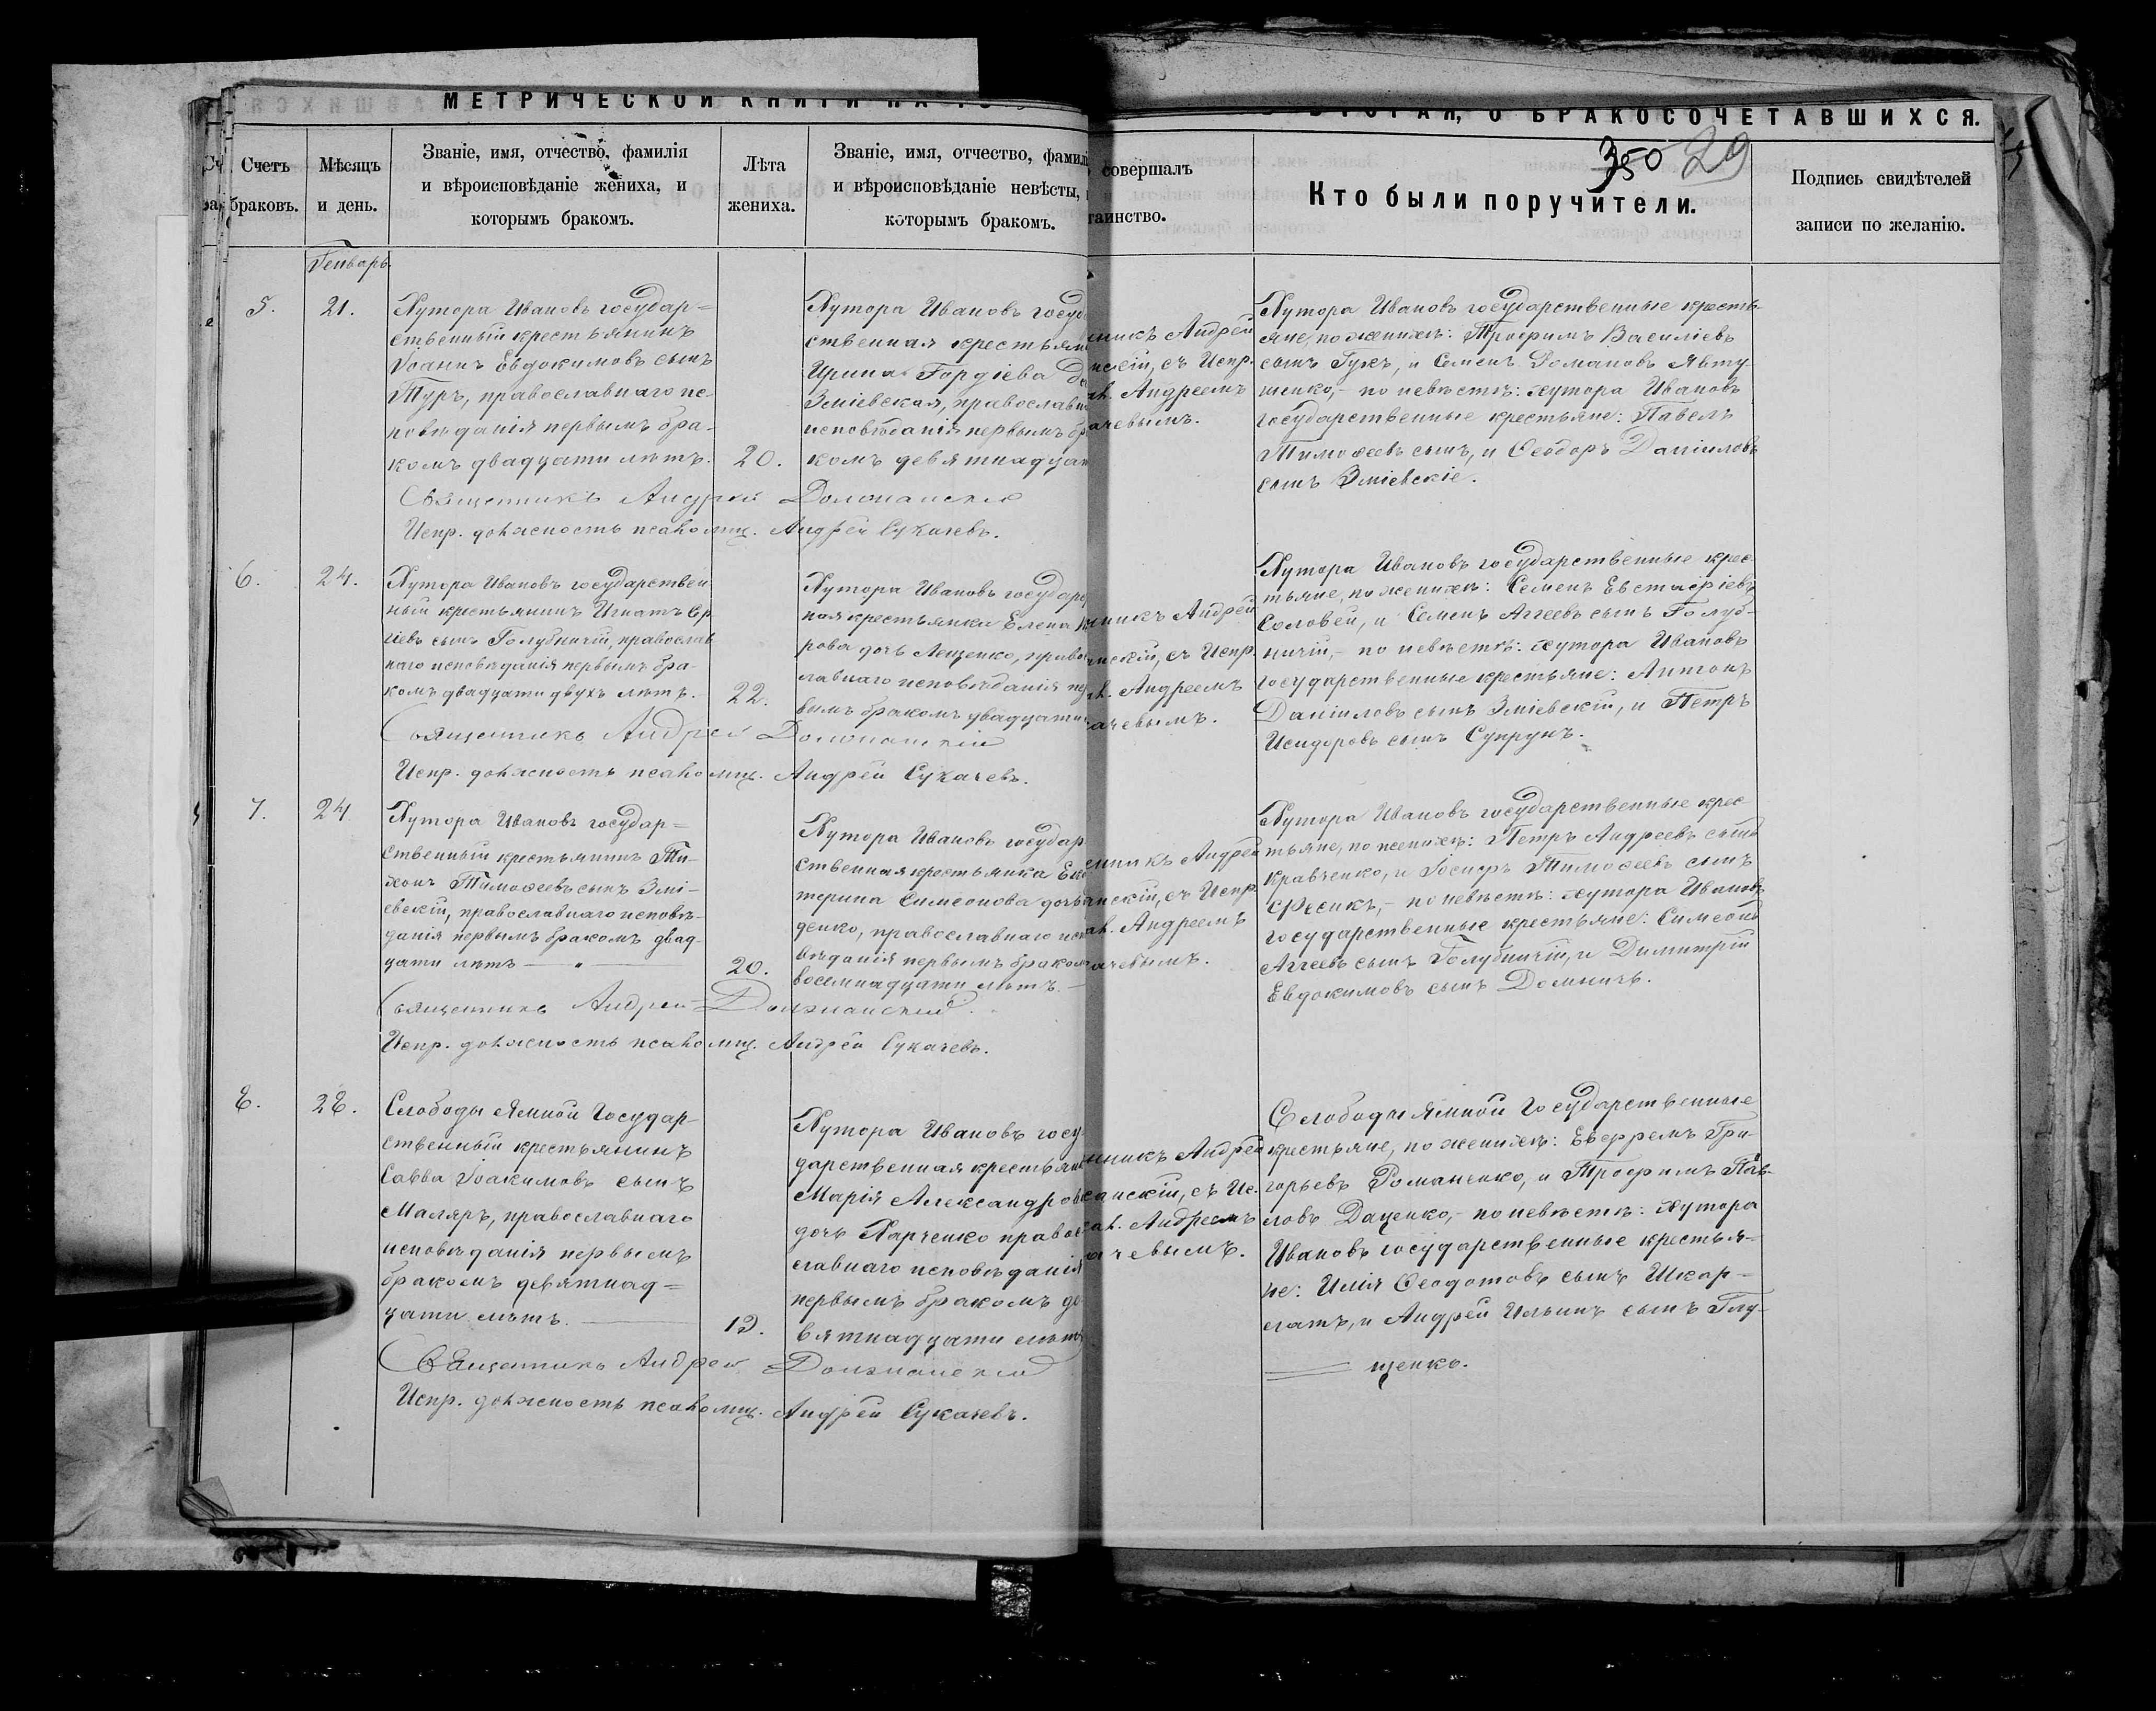 МЕТРИЧЕСКОЙ КНИГИ НА
О БРАКОСОЧЕТАВШИХСЯ.
350 29
Счетъ
браковъ.
Мѣсяцъ
и день.
Званіе, имя, отчество, фамилія
и вѣроисповѣданіе жениха, и
которымъ бракомъ.
Лѣта
жениха.
Званіе, имя, отчество, фамилі
и вѣроисповѣданіе невѣсты,
которымъ бракомъ.
совершалъ
таинство.
Кто были поручители.
Подпись свидѣтелей
записи по желанію.
Генварь.
5.
21.
Хутора Ивановъ государ=
ственный крестьянинъ
Іоаннъ Евдокимовъ сынъ
Туръ, православнаго ис-
повѣданія первымъ бра-
комъ двадцати лѣтъ.
20.
Хутора Ивановъ госуд
ственная крестьян
Ирина Гордіева
Зміевская, православн
исповѣданія первымъ бр
комъ девятнадцат
нникъ Андрей
нскій, съ Испр.
Андреемъ
ачевымъ.
Хутора Ивановъ государственные кресть-
яне, по женихѣ: Трофимъ Василіевъ
сынъ Гукъ, и Семенъ Романовъ Явту-
шенко,- по невѣстѣ: хутора Ивановъ
государственные крестьяне: Павелъ
Тимофеевъ сынъ, и Ѳеодоръ Даніиловъ
сынъ Зміевскіе.
Священникъ Андрей Должанскій
Испр. должность псаломщ. Андрей Сукачевъ.
6.
24.
Хутора Ивановъ государствен
ный крестьянинъ Игнатъ Сер
гіевъ сынъ Голубничій, православ
наго исповѣданія первымъ бра-
комъ двадцати двухъ лѣтъ.
22.
Хутора Ивановъ государс
ная крестьянка Елена
рова дочь Лященко, право
славнаго исповѣданія пер
вымъ бракомъ двадцати
нникъ Андрей
нскій, съ Испр.
Андреемъ
ачевымъ.
Хутора Ивановъ государственные крес-
тьяне, по женихѣ: Семенъ Евстафіевъ
Соловей, и Семенъ Аггеевъ сынъ Голуб-
ничій,- по невѣстѣ: хутора Ивановъ
государственные крестьяне: Антонъ
Даніиловъ сынъ Зміевскій, и Петръ
Исидоровъ сынъ Супрунъ.
Священникъ Андрей Должанскій
Испр. должность псаломщ. Андрей Сукачевъ.
7.
24
Хутора Ивановъ государ=
ственный крестьянинъ Ти-
хонъ Тимофеевъ сынъ Змі-
евскій, православнаго исповѣ-
данія первымъ бракомъ двад-
цати лѣтъ — " —
20.
Хутора Ивановъ государ
ственная крестьянка Ека
терина Симеонова дочь
денко, православнаго исп
вѣданія первымъ бракомъ
восемнадцати лѣтъ. —
нникъ Андрей
нскій, съ Испр
Андреемъ
ачевымъ.
Хутора Ивановъ государственные крес
тьяне, по женихѣ: Петръ Андреевъ сынъ
Кравченко, и Іосифъ Тимофеевъ сынъ
- по невѣстѣ: хутора Ивановъ
государственные крестьяне: Симеонъ
Аггеевъ сынъ Голубничій, и Димитрій
Евдокимовъ сынъ
Священникъ Андрей Должанскій.
Испр. должность псаломщ. Андрей Сукачевъ.
8.
28.
Слободы Ямной Государ-
ственный крестьянинъ
Савва Іоакимовъ сынъ
Маляръ, православнаго
исповѣданія первымъ
бракомъ девятнад=
цати лѣтъ.
19.
Хутора Ивановъ госу
дарственная крестьян
Марія Александров
дочь Харченко право
славнаго исповѣданія
первымъ бракомъ де
вятнадцати лѣтъ
нникъ Андрей
анскій, съ Ис.
Андреемъ
ачевымъ.
Слободы Ямной Государственные
крестьяне, по женихѣ: Евфремъ Гри-
горьевъ Романенко, и Трофимъ Пав-
ловъ Даценко,- по невѣстѣ: Хутора
Ивановъ государственные крестья-
не: Илія Ѳеодотовъ сынъ Шкар=
латъ, и Андрей Ильинъ сынъ Глу-
щенко.
Священникъ Андрей Должанскій
Испр. должность псаломщ. Андрей Сукачевъ.